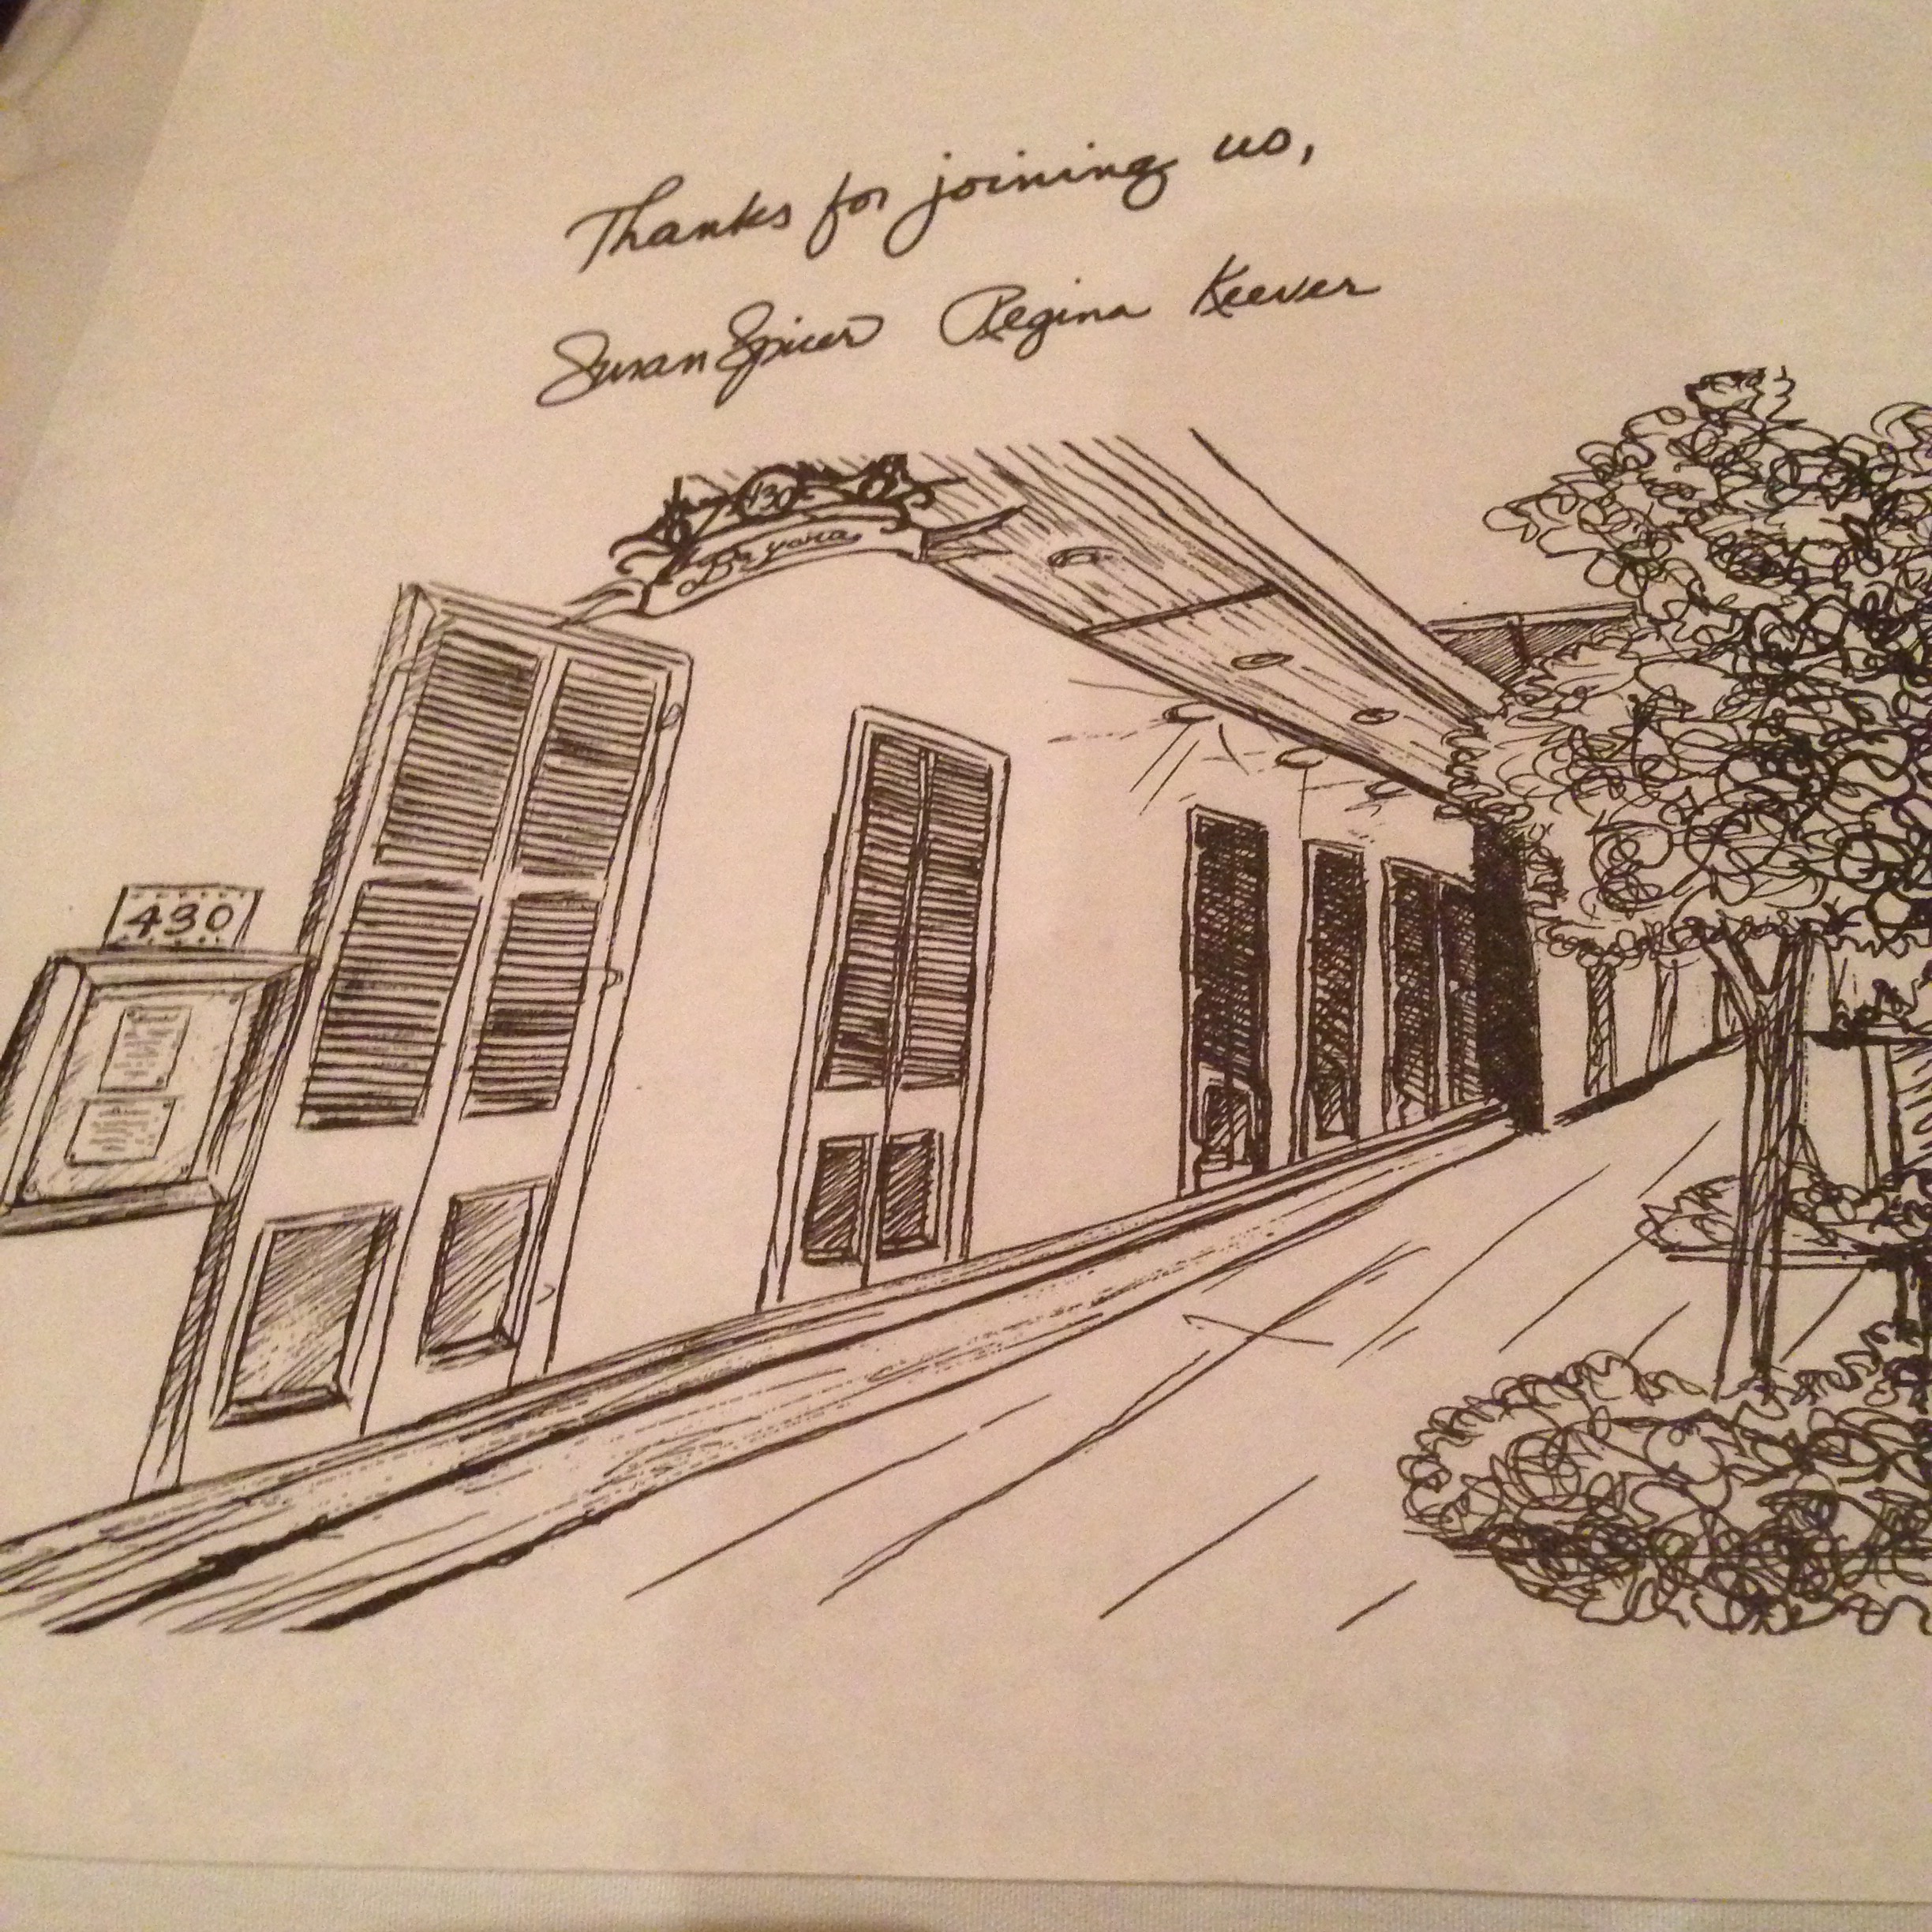 Thanks for joining us,
Susan Spicer Regina Keever
430
Bayona
430